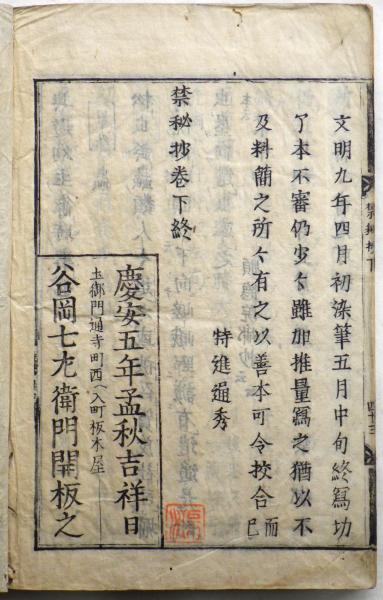 文明九年四月初染筆五月中旬終寫功
了本不審仍少々雖加推量寫之猶以不
及料簡之所々有之以善本可令挍合而已
特進通秀
禁秘抄巻下終
慶安五年孟秋吉祥日
土御門通寺町西へ入町板木屋
谷岡七左衛門開板之
禁秘抄下
四十三